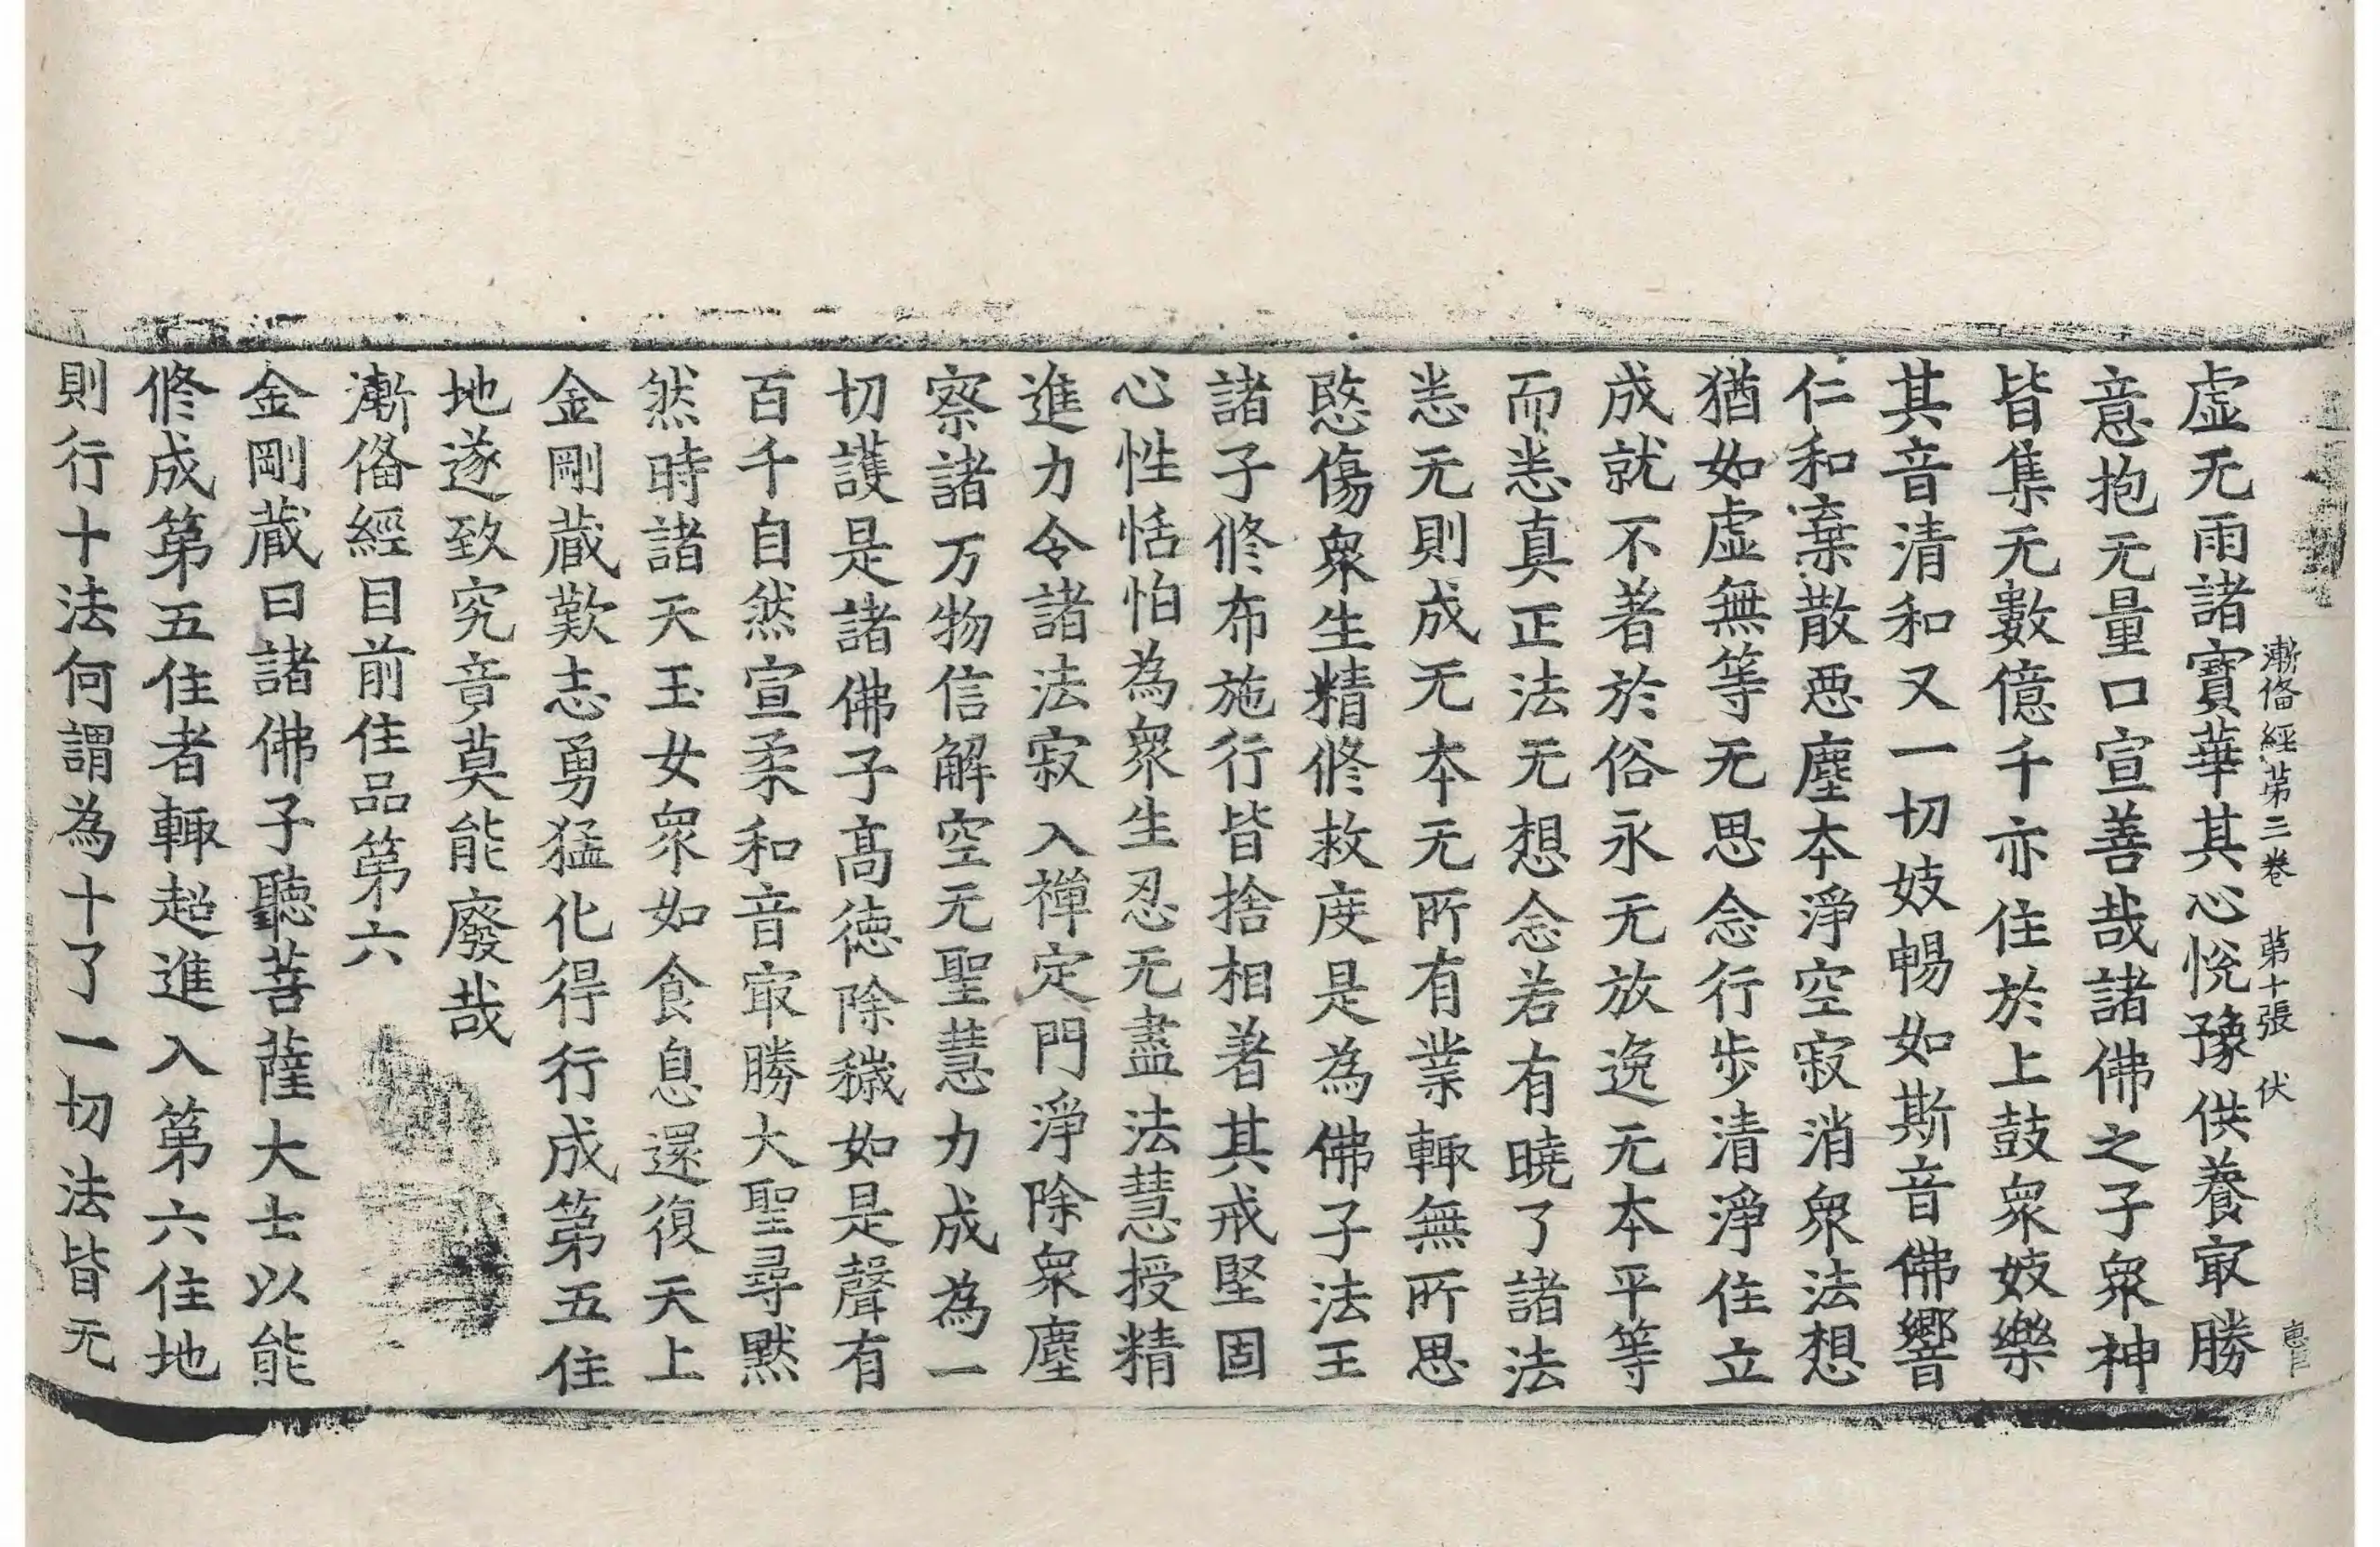 漸俻經第三卷 第十張 伏
虛无雨諸寶華其心悅豫供養㝡勝
意抱无量口宣善哉諸佛之子衆神
皆集无數億千亦住於上鼓衆妓樂
其音清和又一切妓暢如斯音佛響
仁和棄散惡塵本淨空寂消衆法想
猶如虛無等无思念行步清淨住立
成就不著於俗永无放逸无本平等
而恙真正法无想念若有曉了諸法
恙无則成无本无所有業輙無所思
愍傷衆生精修救度是為佛子法王
諸子修布施行皆捨相著其戒堅固
心性恬怕為衆生忍无盡法慧授精
進力令諸法寂入禪定門淨除衆塵
察諸万物信解空无聖慧力成為一
切護是諸佛子高徳除穢如是聲有
百千自然宣柔和音㝡勝大聖尋黙
然時諸天玉女衆如食息還復天上
金剛蔵歎志勇猛化得行成第五住
地遂致究竟莫能廢哉
漸俻經目前住品第六
金剛蔵曰諸佛子聽菩薩大士以能
修成第五住者輙超進入第六住地
則行十法何謂為十了一切法皆无